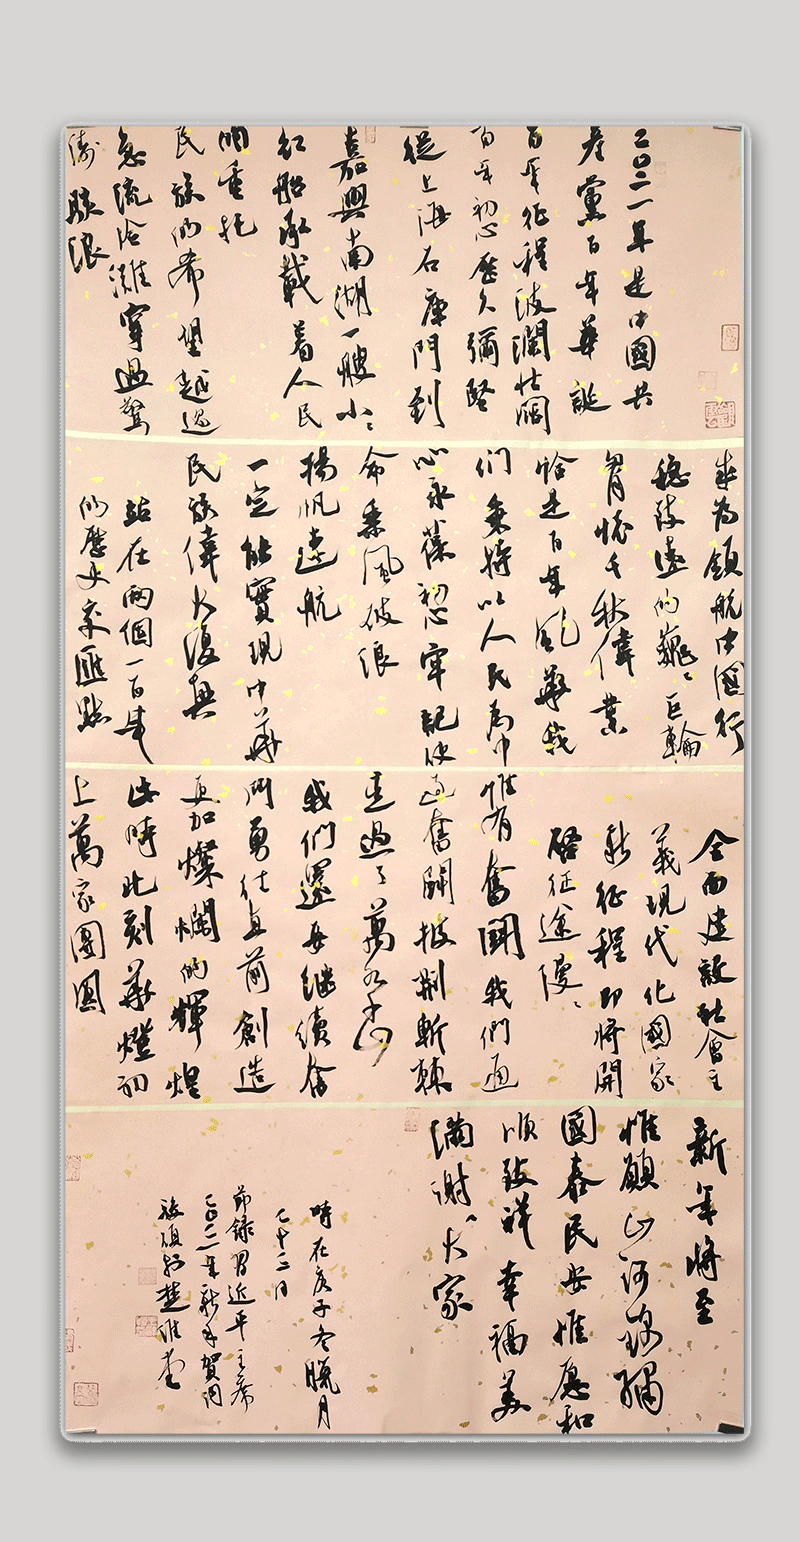 二〇二一年是中國共
産黨百年華誕
百年征程波瀾壮闊
百年初心歷久彌堅
從上海石庫門到
嘉興南湖一艘小〻
紅船承載着人民
的重托
民族的希望越過
急流险灘穿過驚
濤駭浪
成为領航中國行
稳致遠的巍〻巨輪
胸怀千秋偉業
恰是百年風華我
们秉持以人民為中
心永葆初心牢記使
命乘風破浪
揚帆遠航
一定能實現中华
民族偉大復興
站在两個一百年
的歷史交匯點
全面建設社會主
義現代化國家
新征程即将開
啓征途漫〻
惟有奮鬭我們通
过奮鬭披荆斬棘
走過了萬水千山
我們還要继續奋
鬥勇往直前創造
更加燦爛的輝煌
此時此刻华燈初
上萬家團圆
新年将至
惟願山河锦繡
國泰民安惟愿和
順致祥幸福美
满谢〻大家
時在庚子冬臘月
七十二日
節録習近平主席
二〇二一年新年賀词